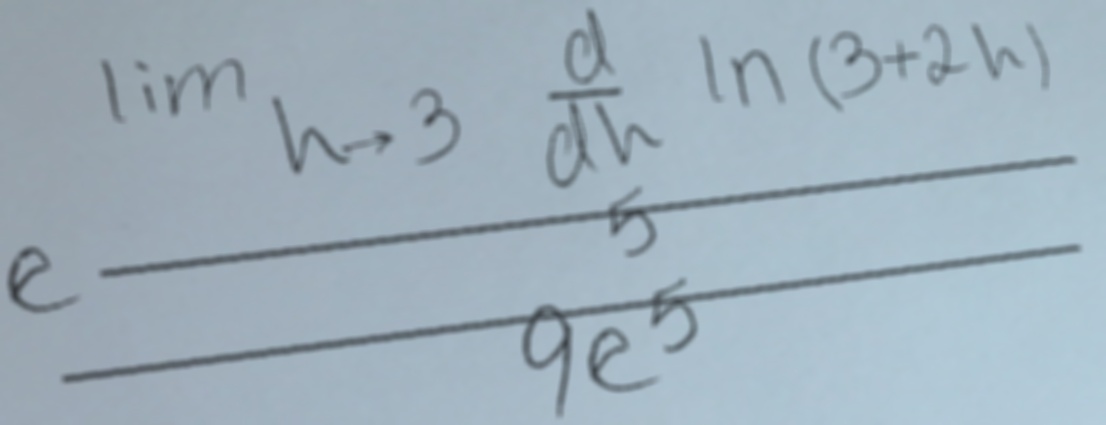 lim h→3 d/dh ln (3+2h)
e 5
9e^5